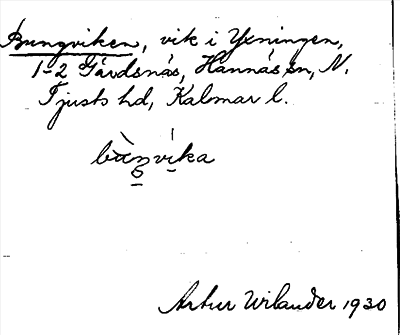 Bungviken, vik i Yxningen,
1-2 Gärdsnäs, Hannäs sn, N.
Tjusts hd, Kalmar l.
Artur Wilander 1930